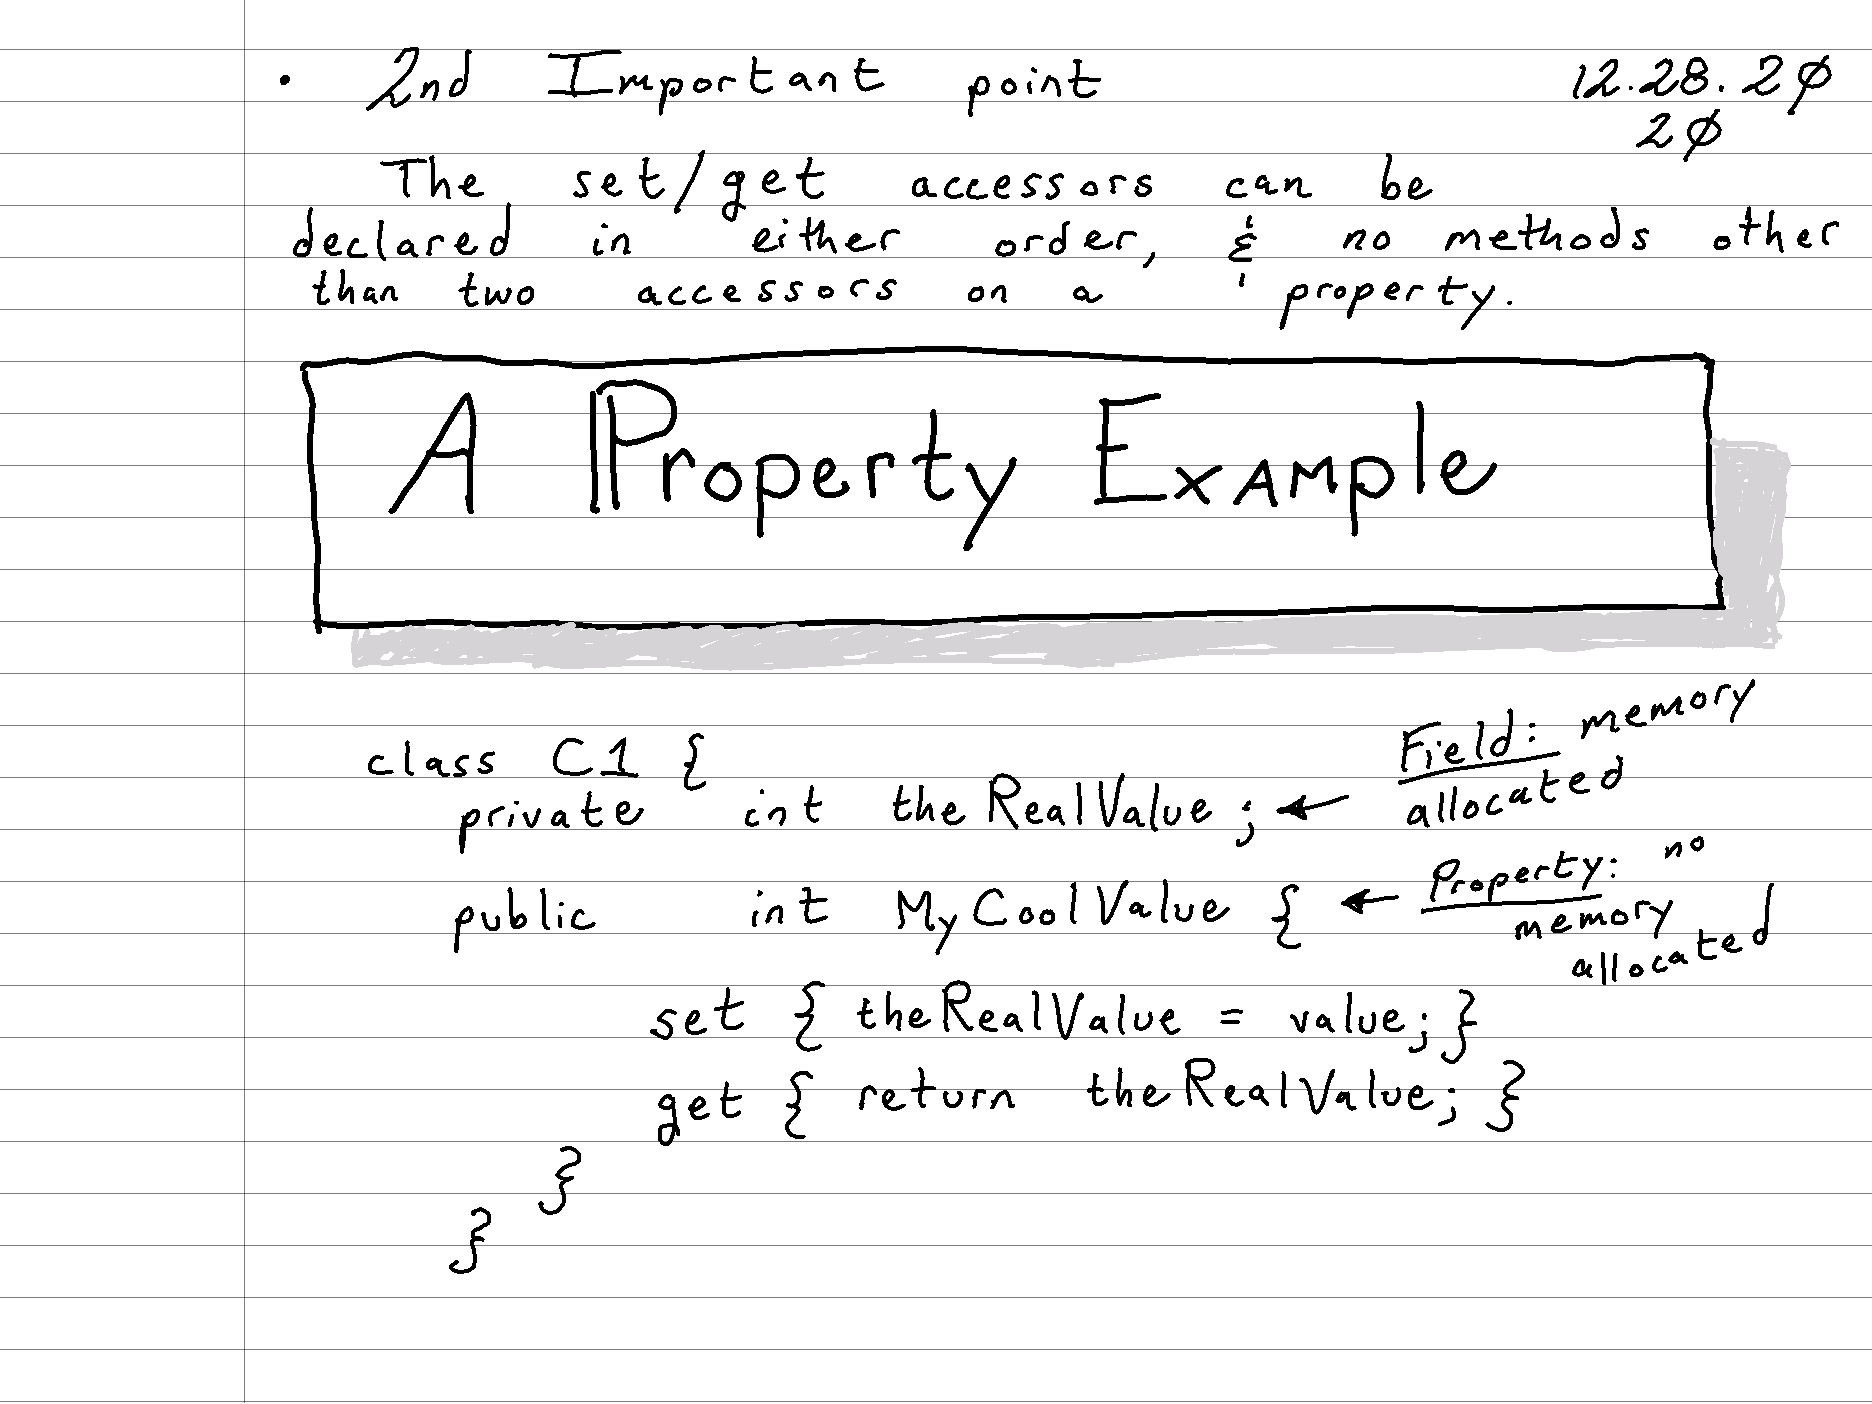 • 2nd Important point
12.28.2Ø
2Ø
The set/get accessors can be
declared in either order, & no methods other
than two accessors on a property.
A Property Example
class C1 {
private int theRealValue; ← Field: memory
allocated
public int MyCoolValue { ← Property: no
memory
allocated
set { theRealValue = value; }
get { return theRealValue; }
}
}